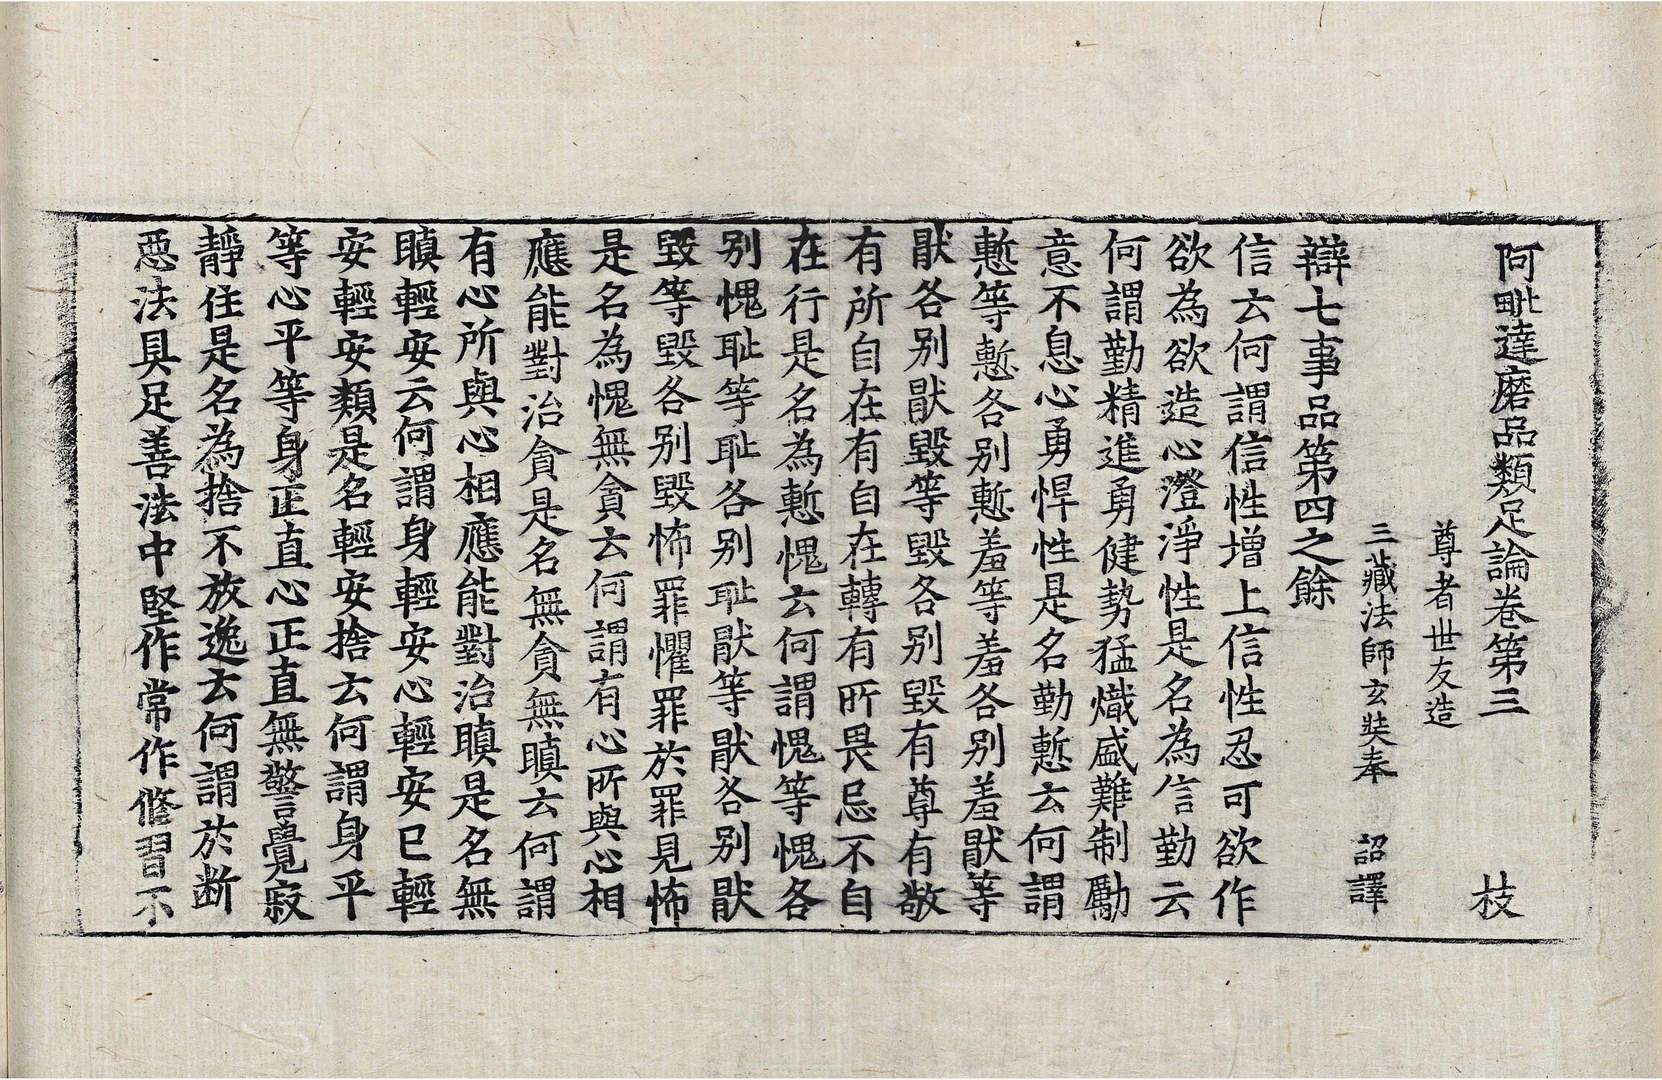 阿毗達磨品類足論卷第三 枝
尊者世友造
三藏法師玄奘奉 詔譯
辯七事品第四之餘
信云何謂信性增上信性忍可欲作
欲為欲造心澄淨性是名為信勤云
何謂勤精進勇健勢猛熾盛難制勵
意不息心勇悍性是名勤慙云何謂
慙等慙各別慙羞等羞各別羞猒等
猒各別猒毀等毀各別毀有尊有敬
有所自在有自在轉有所畏忌不自
在行是名為慙愧云何謂愧等愧各
別愧恥等恥各別恥猒等猒各別猒
毀等毀各別毀怖罪懼罪於罪見怖
是名為愧無貪云何謂有心所與心相
應能對治貪是名無貪無瞋云何謂
有心所與心相應能對治瞋是名無
瞋輕安云何謂身輕安心輕安已輕
安輕安類是名輕安捨云何謂身平
等心平等身正直心正直無警覺寂
靜住是名為捨不放逸云何謂於断
惡法具足善法中堅作常作修習不